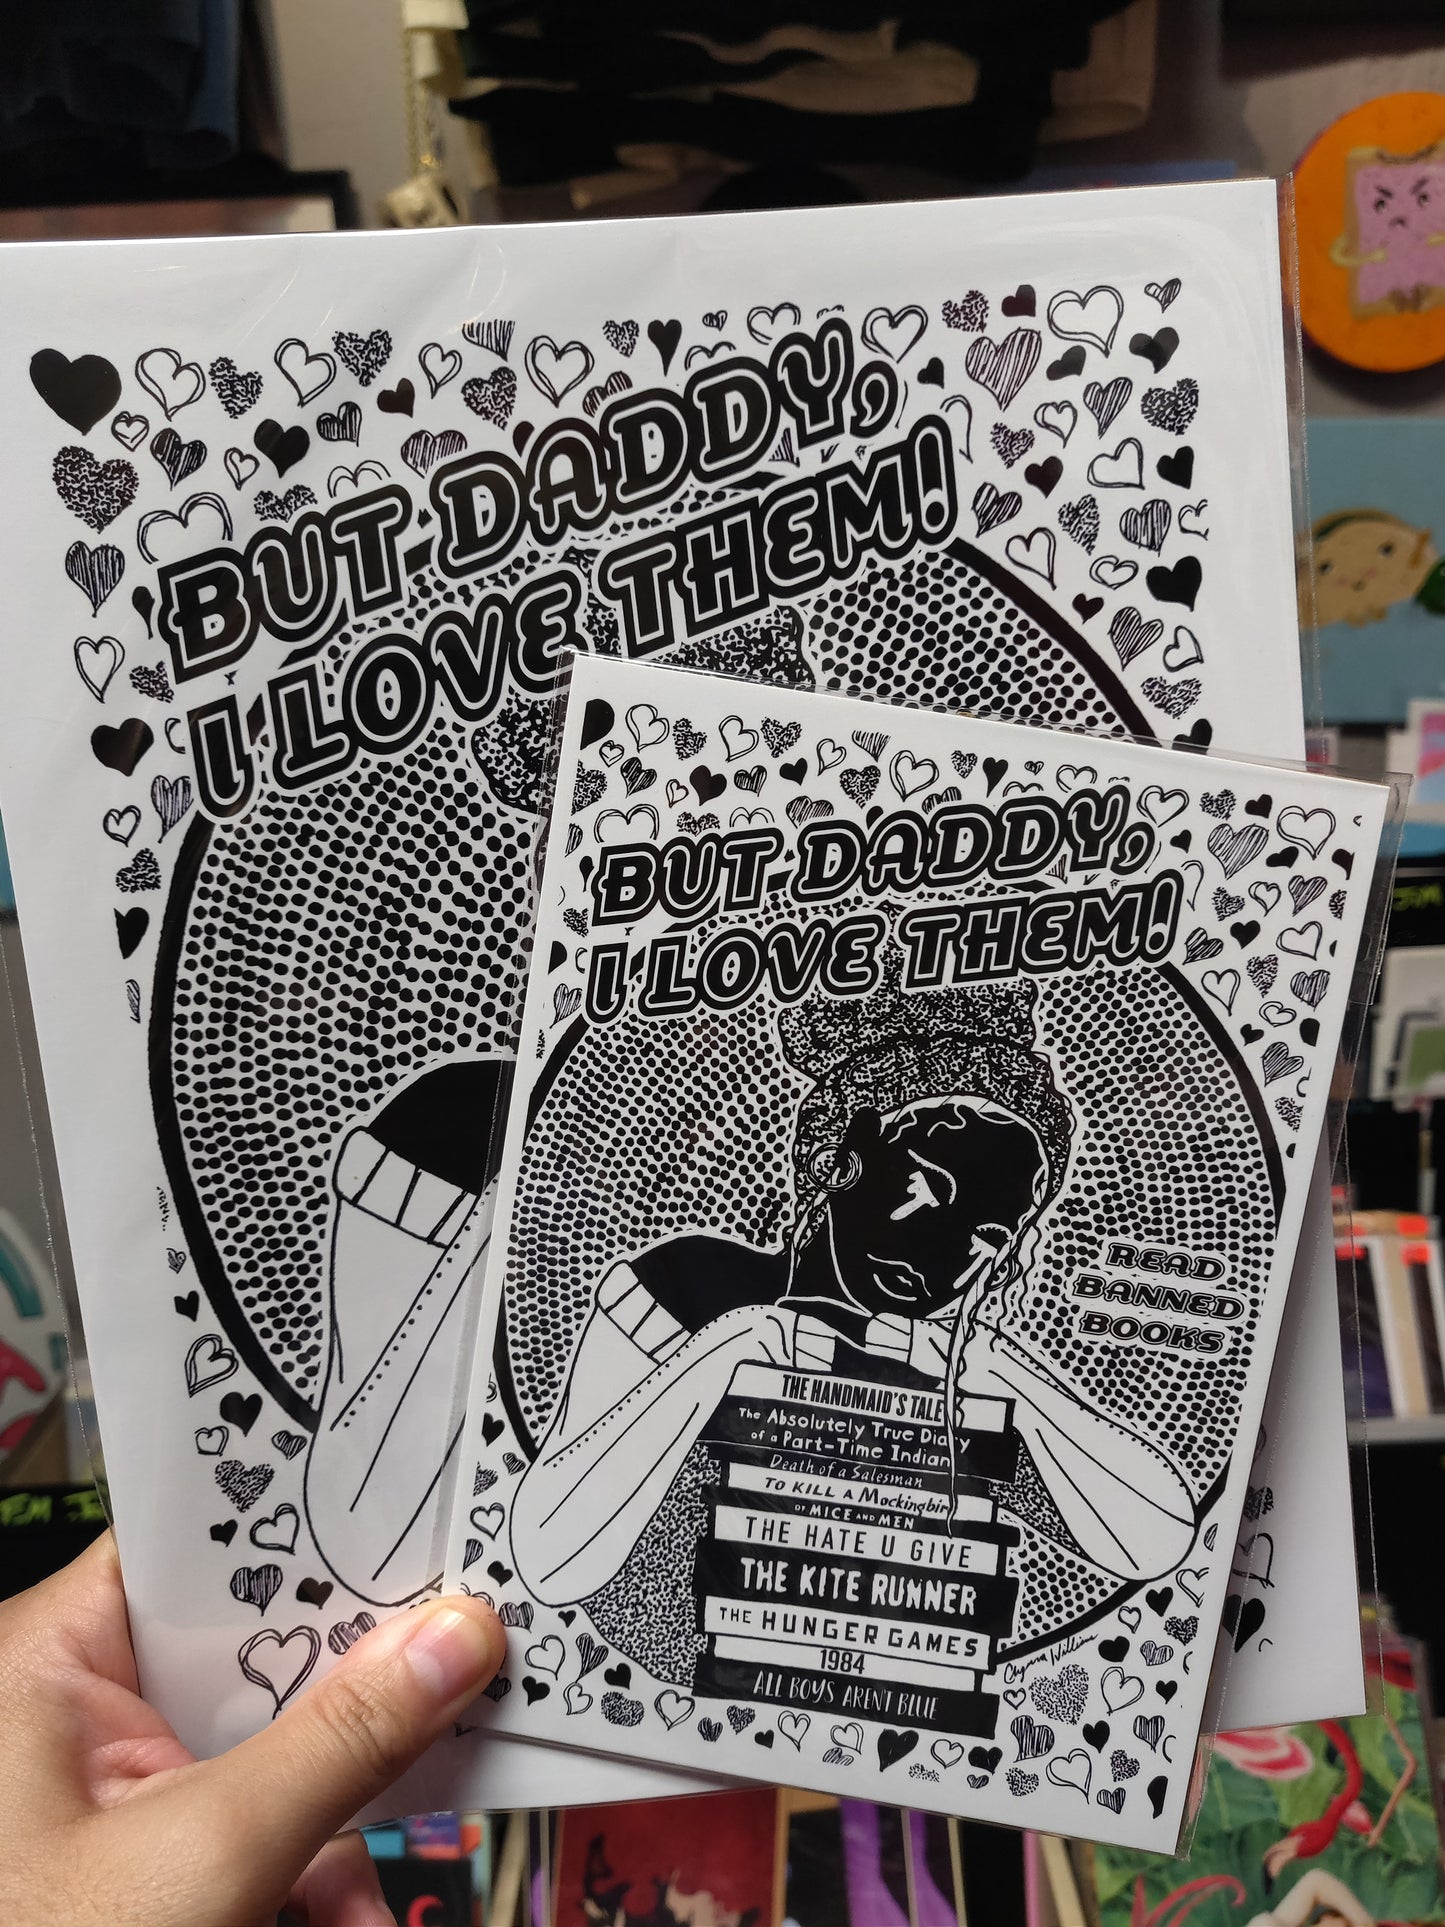 BUT DADDY,
I LOVE THEM!
BUT DADDY,
I LOVE THEM!
READ
BANNED
BOOKS
THE HANDMAID'S TALE
The Absolutely True Diary
of a Part-Time Indian
Death of a Salesman
TO KILL A Mockingbird
OF MICE AND MEN
THE HATE U GIVE
THE KITE RUNNER
THE HUNGER GAMES
1984
ALL BOYS AREN'T BLUE